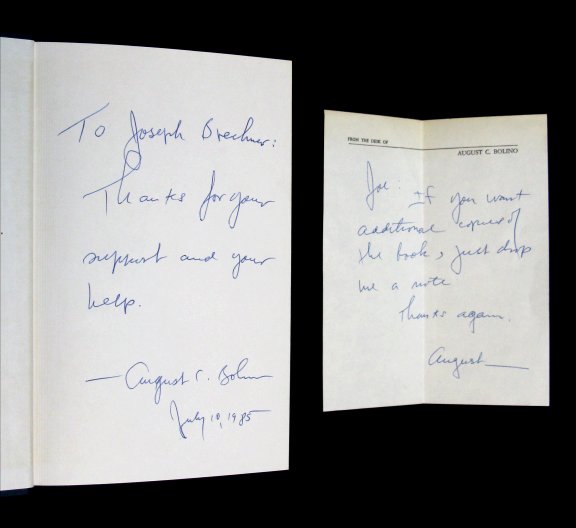 To Joseph Brechner:
Thanks for your
support and your
help.
— August C. Bolino
July 10, 1985
FROM THE DESK OF
AUGUST C. BOLINO
Joe:
If you want
additional copies of
the book, just drop
me a note
Thanks again.
August